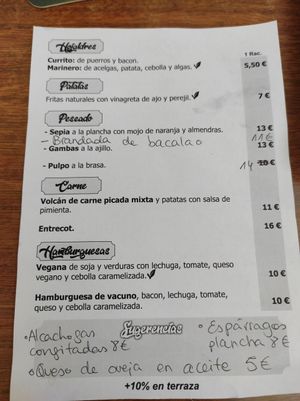 Hojaldres
1 Rac.
Currito: de puerros y bacon.
Marinero: de acelgas, patata, cebolla y algas. 5,50 €
Patatas
Fritas naturales con vinagreta de ajo y perejil. 7 €
Pescado
- Sepia a la plancha con mojo de naranja y almendras. 13 €
- Brandada de bacalao 11€
- Gambas a la ajillo. 13 €
- Pulpo a la brasa. 14 10 €
Carne
Volcán de carne picada mixta y patatas con salsa de
pimienta. 11 €
Entrecot. 16 €
Hamburguesas
Vegana de soja y verduras con lechuga, tomate, queso
vegano y cebolla caramelizada. 10 €
Hamburguesa de vacuno, bacon, lechuga, tomate,
queso y cebolla caramelizada. 10 €
Sugerencias
• Alcachogas
congitadas 8€
• Espárragos
plancha 8€
• Queso de oveja en aceite 5€
+10% en terraza